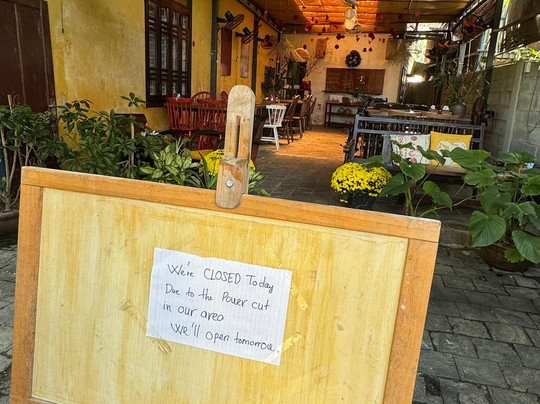 We're CLOSED Today
Due to the Power cut
in our area
We'll open tomorrow.